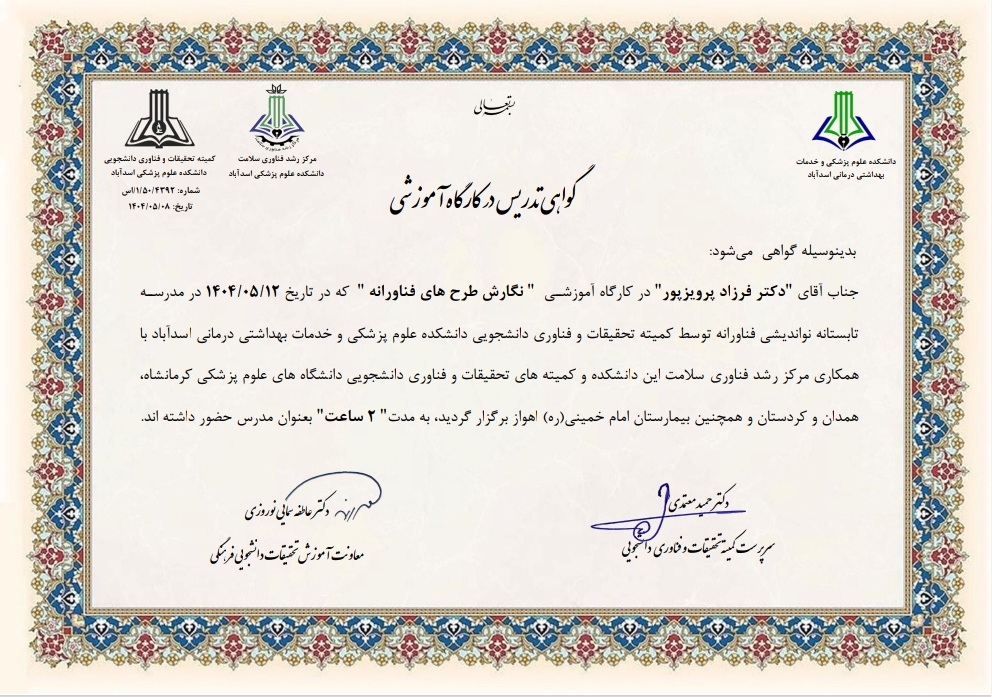 بسمه تعالی
دانشکده علوم پزشکی و خدمات
بهداشتی درمانی اسدآباد
مرکز رشد فناوری سلامت
دانشکده علوم پزشکی اسدآباد
کمیته تحقیقات و فناوری دانشجویی
دانشکده علوم پزشکی اسدآباد
شماره: ۱/۵۰/۴۳۹۲/اس
تاریخ: ۱۴۰۴/۰۵/۰۸
گواهی تدریس در کارگاه آموزشی
بدینوسیله گواهی می‌شود:
جناب آقای "دکتر فرزاد پرویزپور" در کارگاه آموزشـی " نگارش طرح های فناورانه " که در تاریخ ۱۴۰۴/۰۵/۱۲ در مدرسـه
تابستانه نواندیشی فناورانه توسط کمیته تحقیقات و فناوری دانشجویی دانشکده علوم پزشکی و خدمات بهداشتی درمانی اسدآباد با
همکاری مرکز رشد فناوری سلامت این دانشکده و کمیته های تحقیقات و فناوری دانشجویی دانشگاه های علوم پزشکی کرمانشاه،
همدان و کردستان و همچنین بیمارستان امام خمینی(ره) اهواز برگزار گردید، به مدت" ۲ ساعت" بعنوان مدرس حضور داشته اند.
دکتر حمید معتمدی
سرپرست کمیته تحقیقات و فناوری دانشجویی
دکتر عاطفه سمایی نوروزی
معاونت آموزش تحقیقات دانشجویی فرهنگی